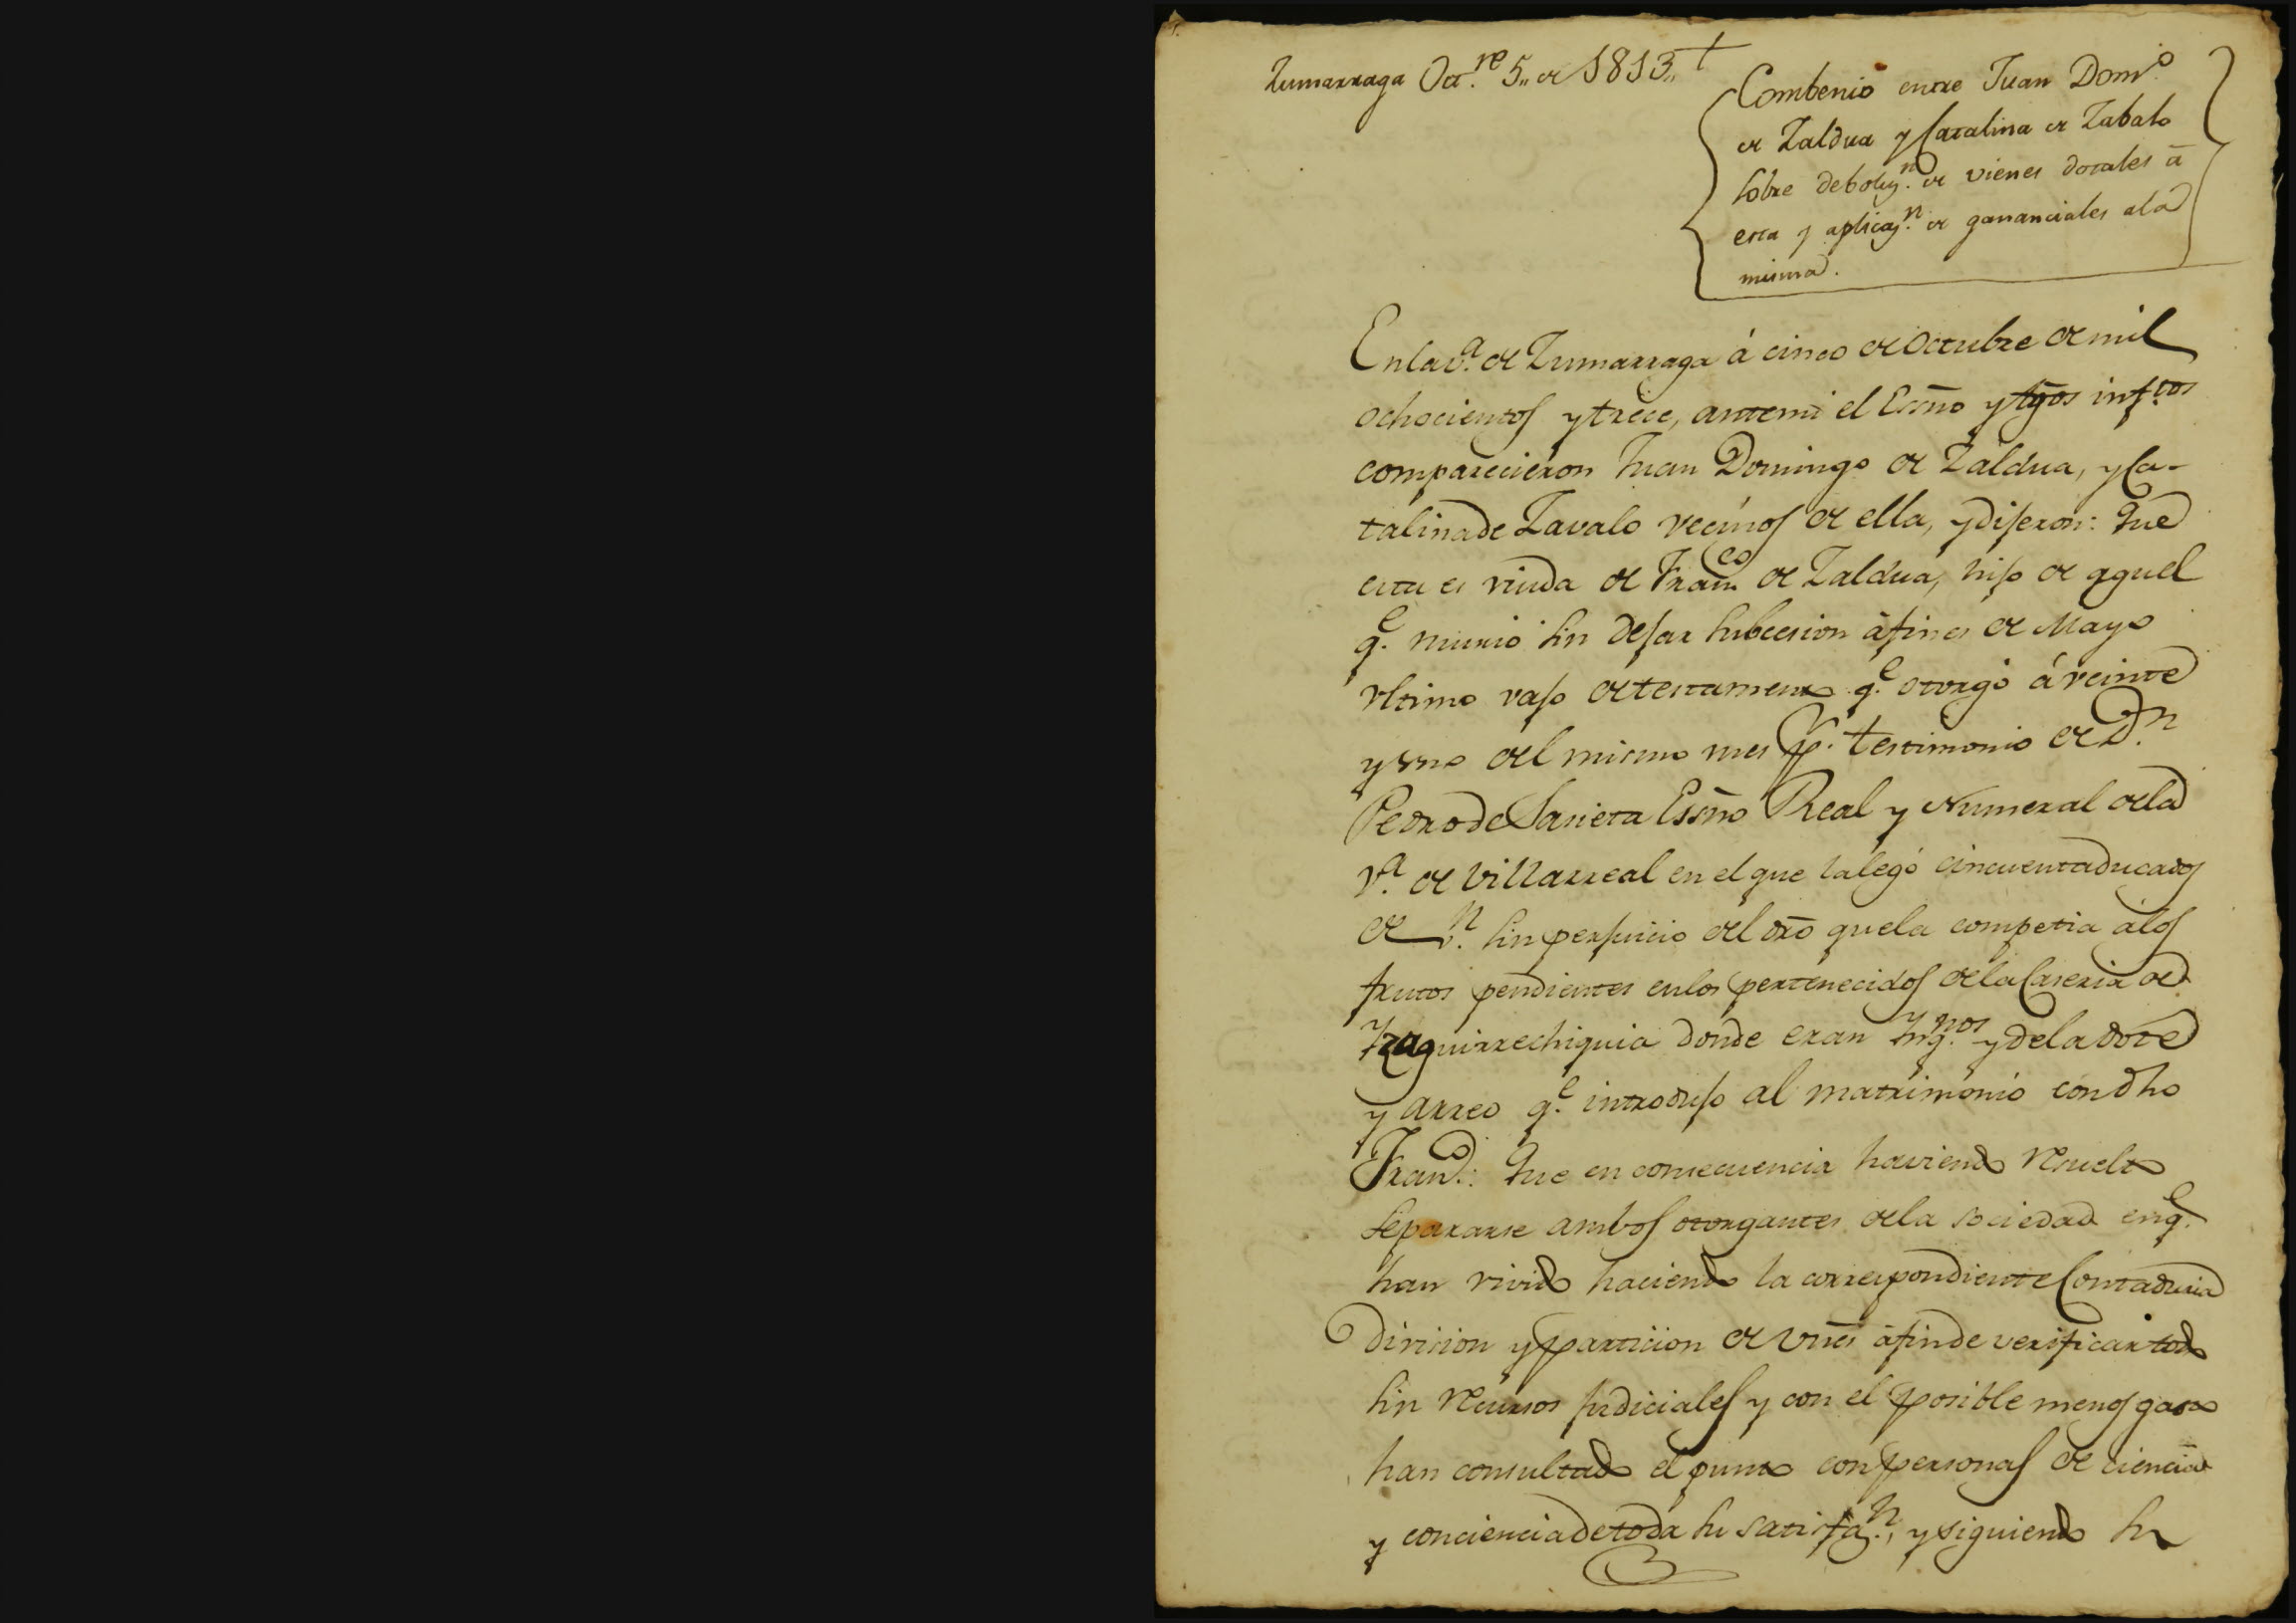 Zumarraga Oct.re 5,, de 1813,, +
Combenio entre Juan Dom.o
de Zaldua y Catalina de Zabalo
sobre deboluz.n de vienes dotales â
esta y aplicaz.n de gananciales a la
misma.
En la v.a de Zumarraga á cinco de Octubre de mil
ochocientos y trece, ante mi el Essno y tgos infrtos
comparecieron Juan Domingo de Zaldua, y Ca-
talina de Zavalo vecinos de ella, y dijeron: Que
esta es viuda de Franco de Zaldua, hijo de aquel
q.e murió sin dejar subcesion á fines de Mayo
ultimo vajo de testamento q.e otorgó á veinte
y uno del mismo mes p.r testimonio de D.n
Pedro de Sarieta Essno Real y Numeral de la
V.a de Villarreal en el que la legó cincuenta ducados
de v.n sin perjuicio del dro que la competia á los
frutos pendientes en los pertenecidos de la Caseria de
Yzaguirrechiquia donde eran Ynq.nos y de la dote
y arreo q.e introdujo al matrimonio con dho
Franco.: Que en consecuencia haviendo resuelto
separarse ambos otorgantes de la sociedad en q.e
han vivido haciendo la correspondiente Contaduria
Division y particion de vnes á fin de verificar todo
sin recursos judiciales y con el posible menos gasto
han consultado el punto con personas de ciencia
y conciencia de toda su satisfaz.n, y siguiendo su